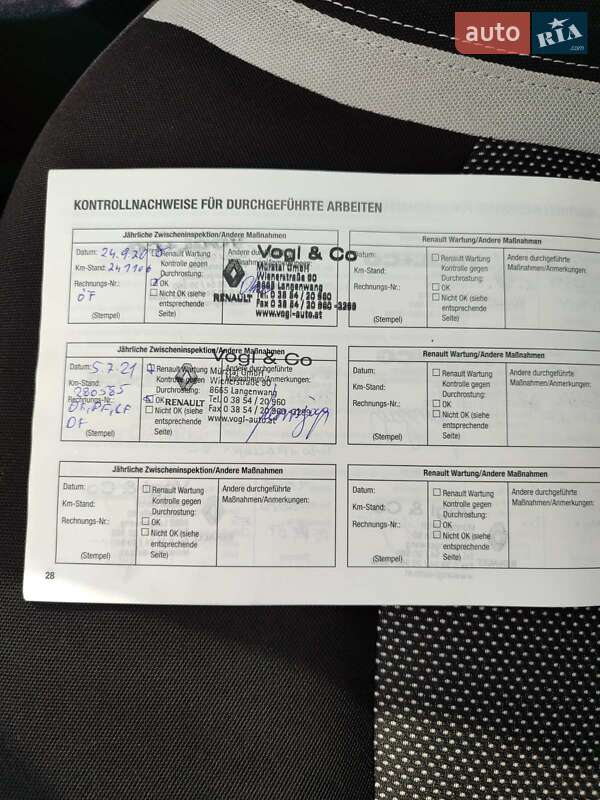 auto RIA .com
KONTROLLNACHWEISE FÜR DURCHGEFÜHRTE ARBEITEN
Jährliche Zwischeninspektion/Andere Maßnahmen
Datum: 24.9.20
Km-Stand:
Rechnungs-Nr.:
ÖF
(Stempel)
Renault Wartung
Kontrolle gegen
Durchrostung:
OK
Nicht OK (siehe
entsprechende
Seite)
Vogl & Co
Mürztal GmbH
Wienerstraße 90
8665 Langenwang
Tel. 0 38 54 / 20 960
Fax 0 38 54 / 20 960 -3269
www.vogl-auto.at
RENAULT
Renault Wartung/Andere Maßnahmen
Datum:
Km-Stand:
Rechnungs-Nr.:
(Stempel)
Renault Wartung
Kontrolle gegen
Durchrostung:
OK
Nicht OK (siehe
entsprechende
Seite)
Andere durchgeführte
Maßnahmen/Anmerkungen:
Jährliche Zwischeninspektion/Andere Maßnahmen
Datum: 5.7.21
Km-Stand:
280585
Rechnungs-Nr.:
ÖF
(Stempel)
Renault Wartung
Kontrolle gegen
Durchrostung:
OK
Nicht OK (siehe
entsprechende
Seite)
Vogl & Co
Mürztal GmbH
Wienerstraße 90
8665 Langenwang
Tel. 0 38 54 / 20 960
Fax 0 38 54 / 20 960 -3269
www.vogl-auto.at
RENAULT
Renault Wartung/Andere Maßnahmen
Datum:
Km-Stand:
Rechnungs-Nr.:
(Stempel)
Renault Wartung
Kontrolle gegen
Durchrostung:
OK
Nicht OK (siehe
entsprechende
Seite)
Andere durchgeführte
Maßnahmen/Anmerkungen:
Jährliche Zwischeninspektion/Andere Maßnahmen
Datum:
Km-Stand:
Rechnungs-Nr.:
(Stempel)
Renault Wartung
Kontrolle gegen
Durchrostung:
OK
Nicht OK (siehe
entsprechende
Seite)
Andere durchgeführte
Maßnahmen/Anmerkungen:
Renault Wartung/Andere Maßnahmen
Datum:
Km-Stand:
Rechnungs-Nr.:
(Stempel)
Renault Wartung
Kontrolle gegen
Durchrostung:
OK
Nicht OK (siehe
entsprechende
Seite)
Andere durchgeführte
Maßnahmen/Anmerkungen:
28